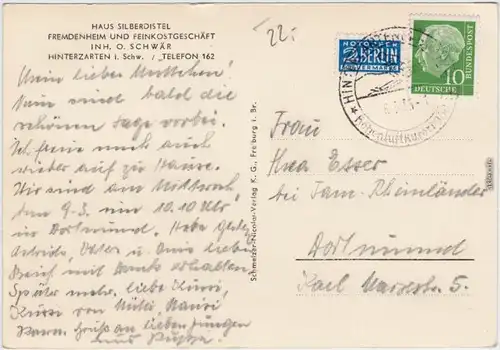 HAUS SILBERDISTEL
FREMDENHEIM UND FEINKOSTGESCHÄFT
INH. O. SCHWÄR
HINTERZARTEN i. Schw. / TELEFON 162
22.-
Mein liebes Muttchen!
Nun sind bald die
schönen Tage vorbei.
Ich freue mich auch
wieder auf zu Hause.
Wir sind am Mittwoch
den 9.3. um 10.10 Uhr
in Dortmund. Habe
Vater u. Omis lieben
Brief mit Dank erhalten.
Später mehr. Liebe
von
Gruß an lieben Jungen
Schmelzer-Nicolai-Verlag K. G., Freiburg i. Br.
NOTOPFER
2 BERLIN
STEUERMARKE
10
DEUTSCHE BUNDESPOST
Höhenluftkurort
Frau
Thea Esser
bei Fam. Rheinländer
Dortmund
Karl Marxstr. 5.